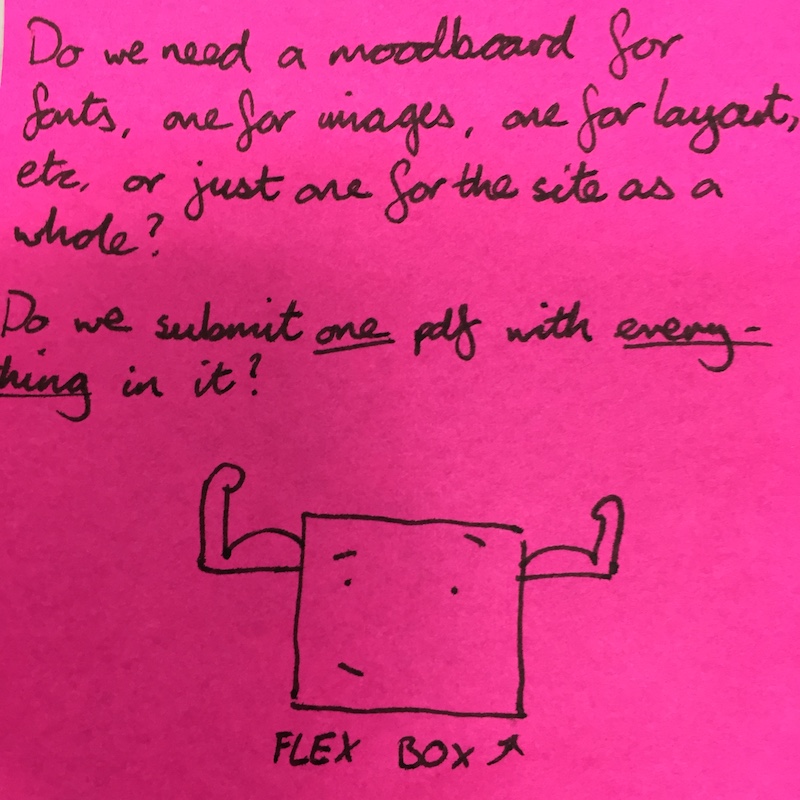 Do we need a moodboard for
fonts, one for images, one for layout,
etc. or just one for the site as a
whole?
Do we submit one pdf with every-
thing in it?
FLEX BOX